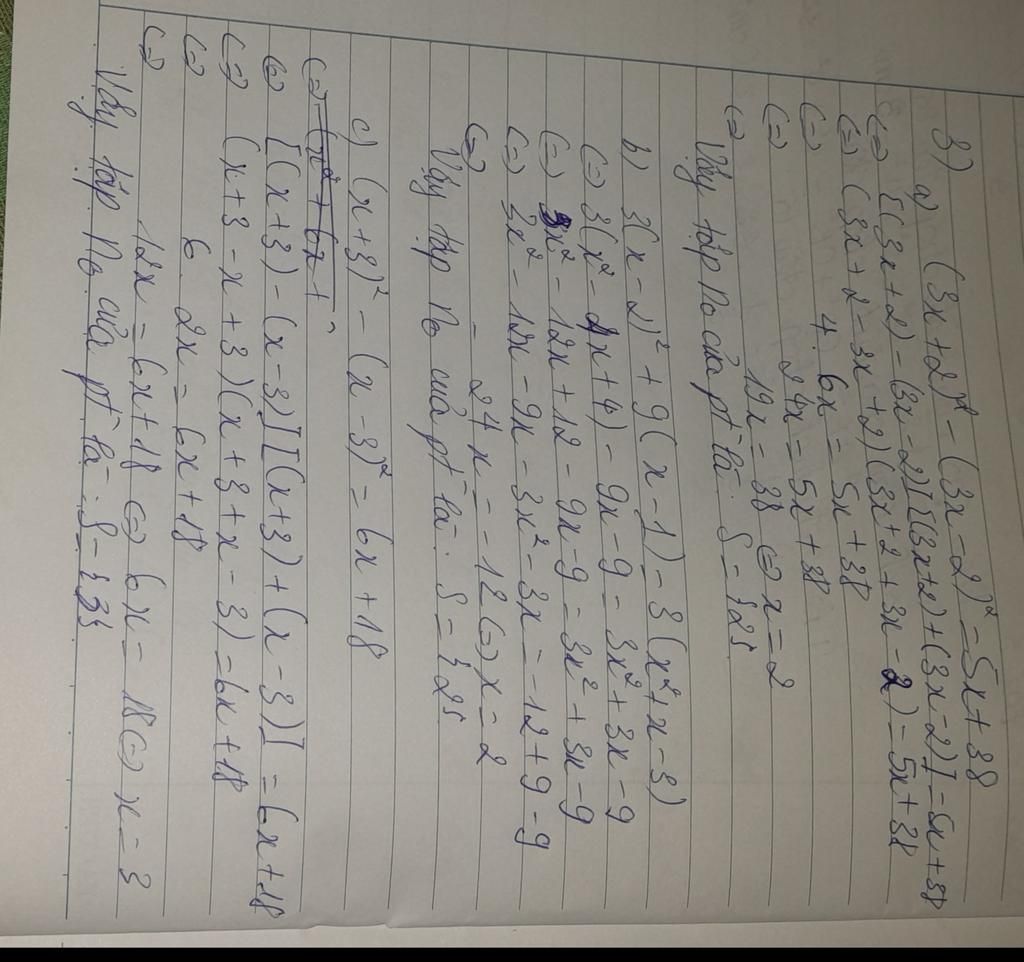 3)
a) (3x+2)² - (3x-2)² = 5x+38
(=) [(3x+2) - (3x-2)][(3x+2)+(3x-2)] = 5x+38
(=) (3x+2-3x+2)(3x+2+3x-2) = 5x+38
(=) 4. 6x = 5x+38
(=) 24x = 5x+38
(=) 19x = 38 (=) x = 2
Vậy tập no của pt là: S = {2}
b) 3(x-2)² + 9(x-1) = 3(x²+x-3)
(=) 3(x²-4x+4) - 9x-9 = 3x²+3x-9
(=) 3x²-12x+12-9x-9 = 3x²+3x-9
(=) 3x²-12x-9x-3x²-3x = -12+9-9
(=) -24x = -12 (=) x = 2
Vậy tập no của pt là: S = {2}
c) (x+3)² - (x-3)² = 6x+18
(=) (x²+6x+
(=) [(x+3) - (x-3)][(x+3)+(x-3)] = 6x+18
(=) (x+3-x+3)(x+3+x-3) = 6x+18
(=) 6 2x = 6x+18
(=) 12x = 6x+18 (=) 6x = 18 (=) x = 3
Vậy tập no của pt là: S = {3}